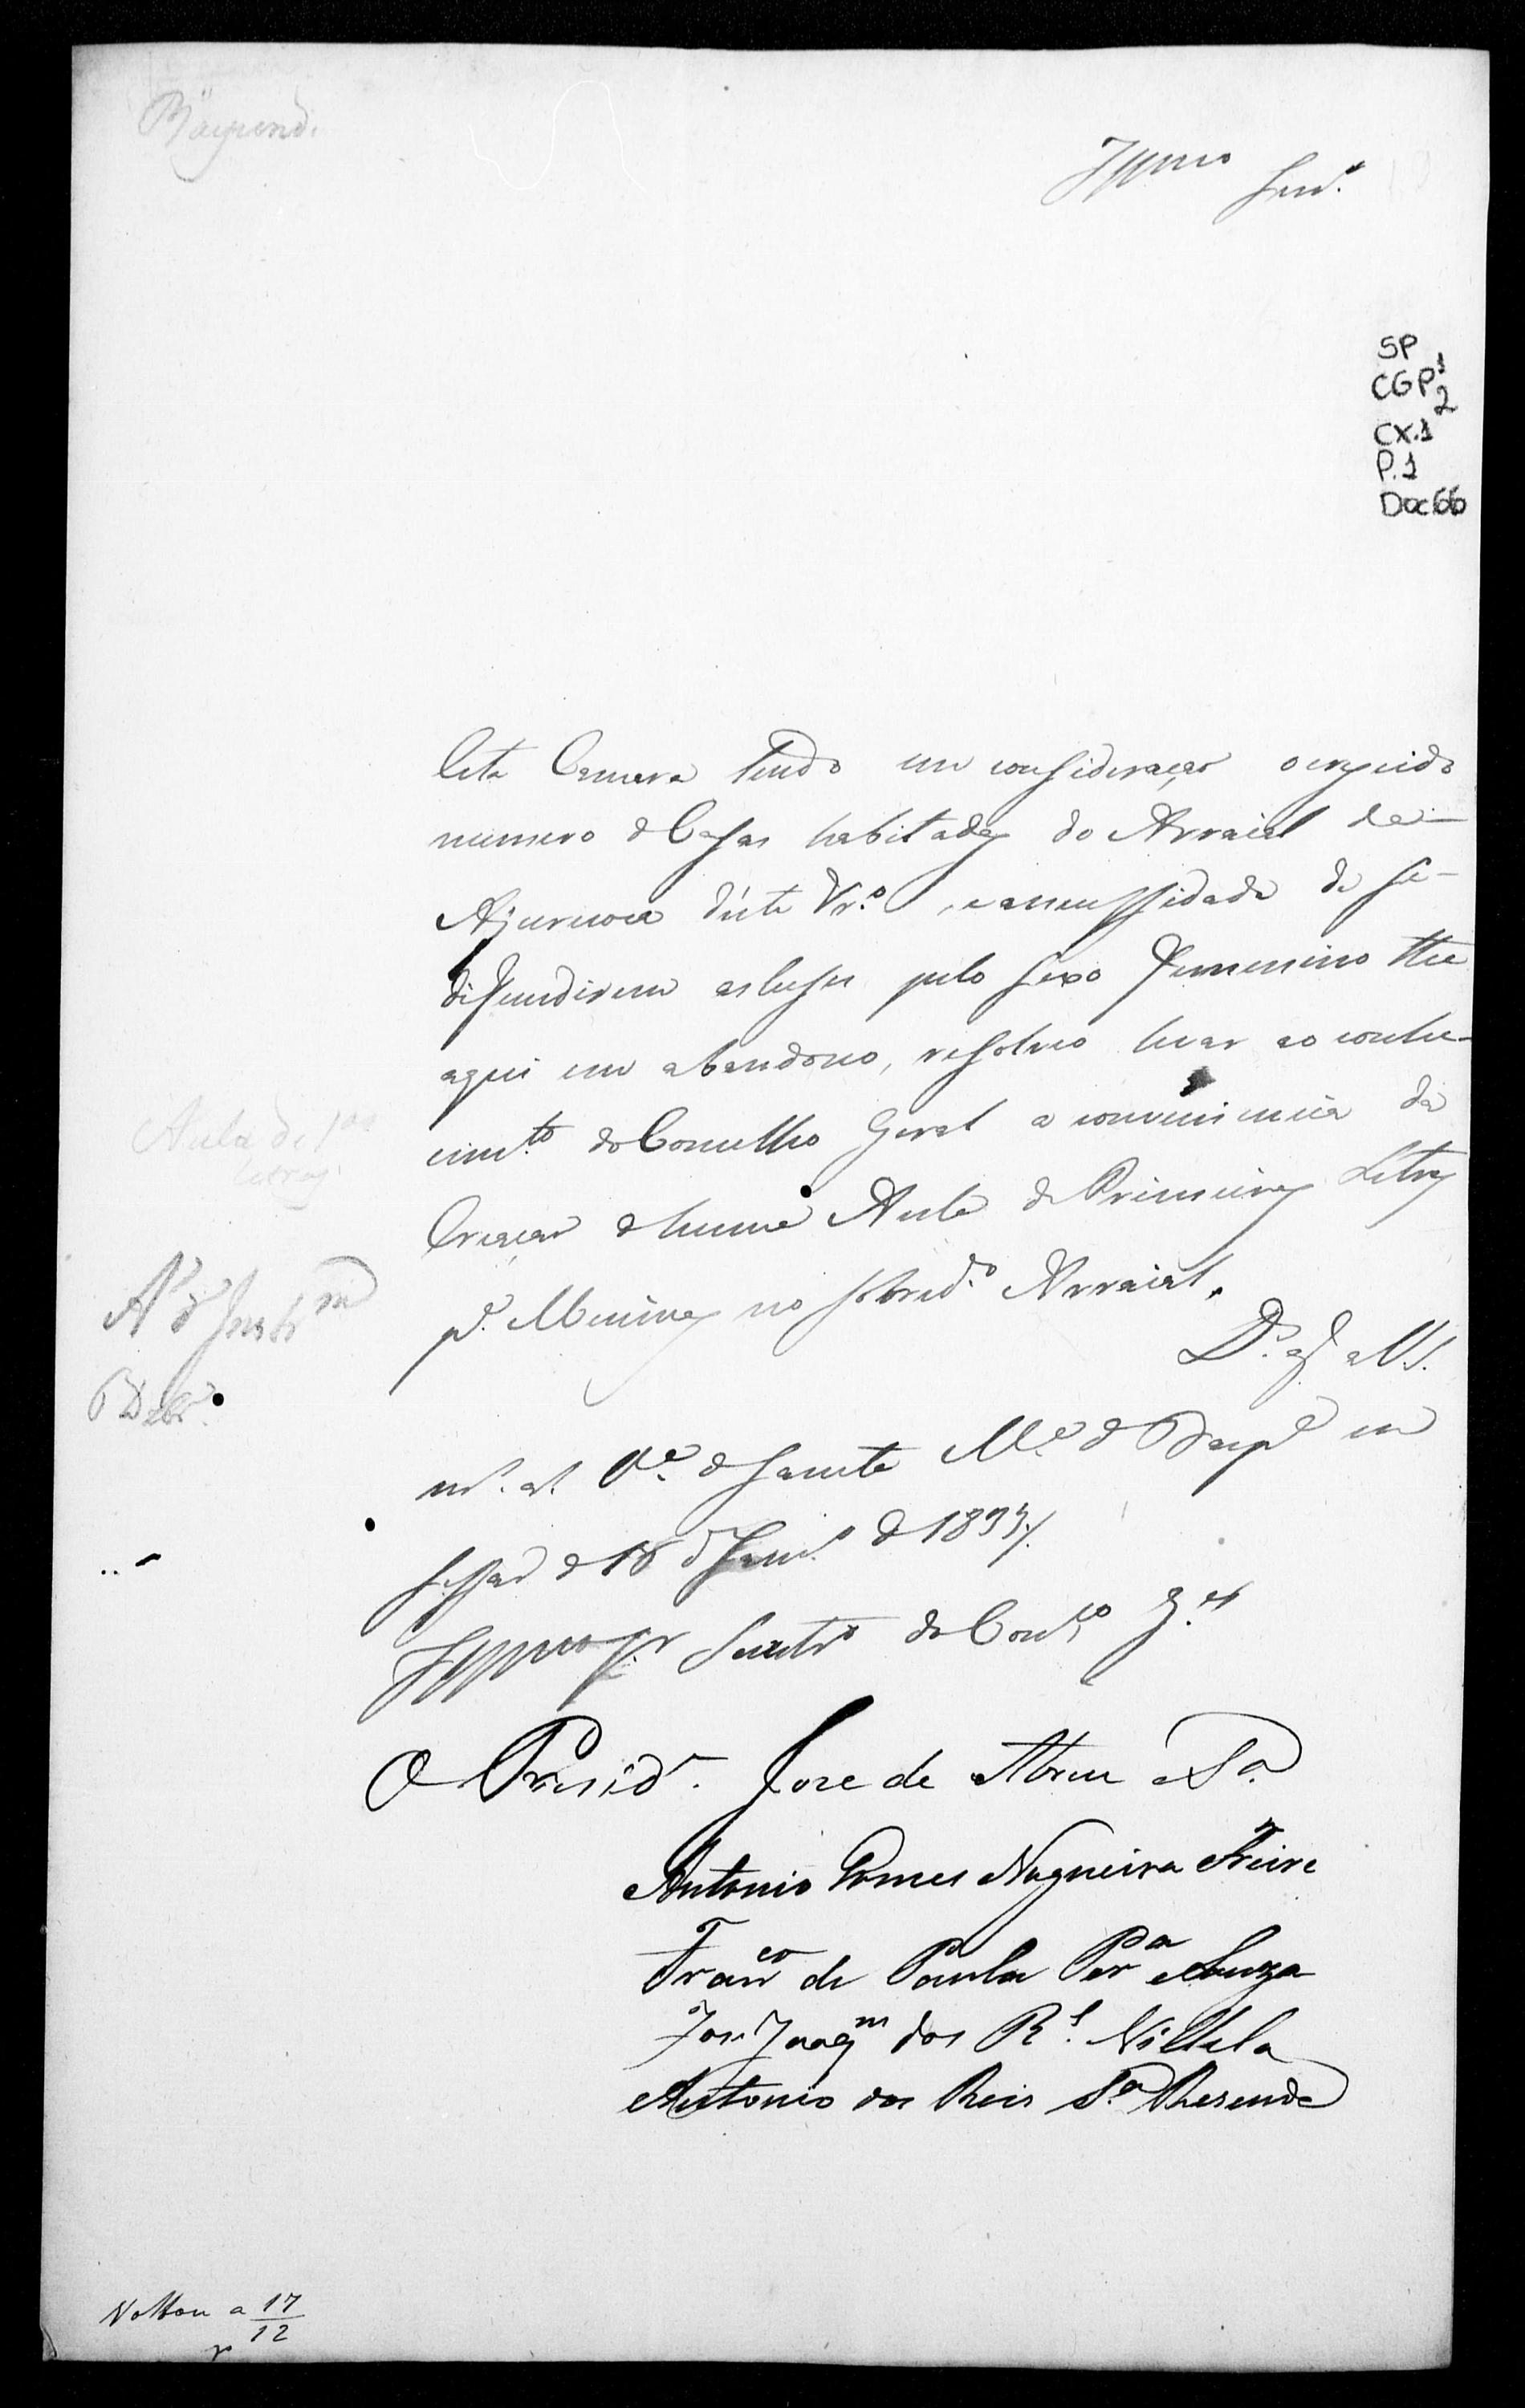 Baepend.
Illmo Senr.
SP
CGP 1
2
CX.1
P.1
Doc66
Esta Camara tendo em consideração o crescido
numero de Casas habitadas do Arraial da
Ajuruoca dêste Tr.º, e anecessidade de se
difundirem asluses pelo sexo Femenino the
aqui em abandono, resolveo levar ao conhe-
cim.to do Conselho Geral a conveniencia da
Creação de huma Aula de Primeiras Letras
p.ª Meninas no sobred.º Arraial.
D.s g.e a V.S.
m.s a.s V.ª de Santa M.ª de Baep.e em
Sessão de 18 de Jan.º de 1833.
Illmo Sr. Secretr.º do Cons.º G.al
O Presid.e Jose de Abreu S.ª
Antonio Gomes Nogueira Freire
Fran.co de Paula Per.a e Souza
Jose Joaq.m dos R.s Villela
Antonio dos Reis S.ª Resende
Aula de 1.as
Letras
A' d' Instr.m
6 Dzbr.º
Voltou a 17
12